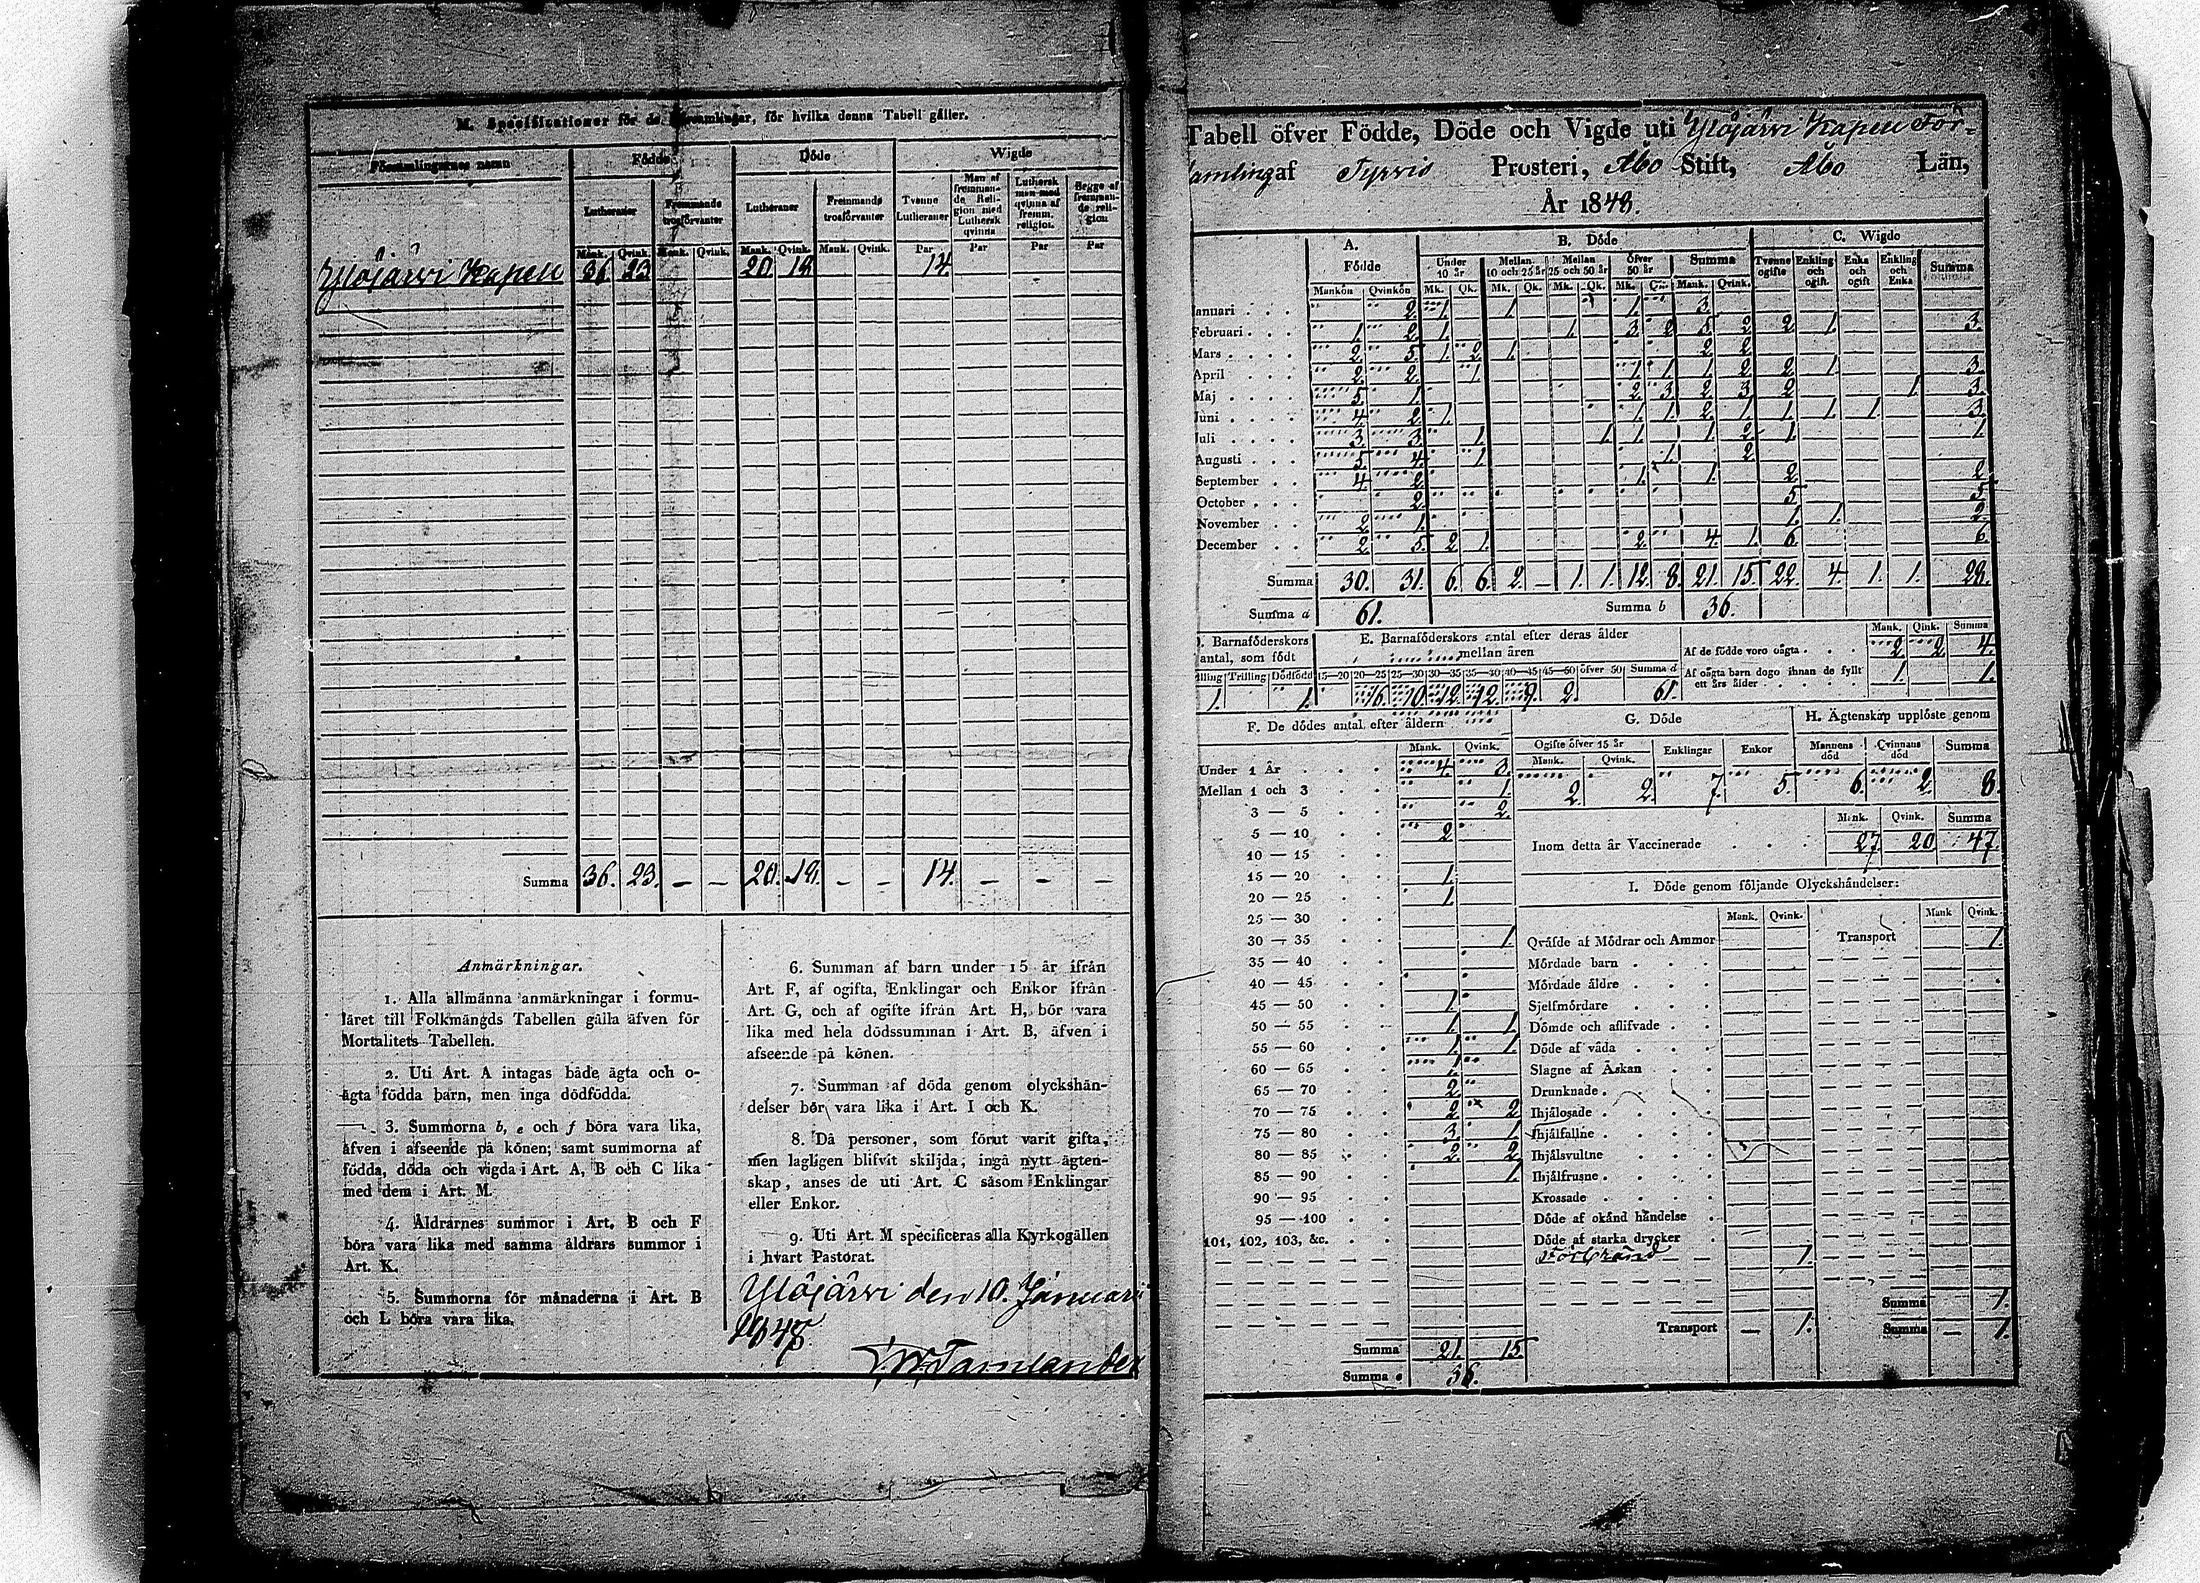 M. Specificationer för de Församlingar, för hvilka denna Tabell gäller.
Församlingarnes namn | Födde | Döde | Wigde
Lutheraner | Fremmande trosförvanter | Lutheraner | Fremmande trosförvanter | Tvenne Lutheraner | Man af fremmande Religion med Luthersk qvinna | Luthersk man med qvinna af fremm. religion. | Begge af fremmande religion
Mank. | Qvink. | Mank. | Qvink. | Mank. | Qvink. | Mank. | Qvink. | Par | Par | Par | Par
Ylöjärvi Kapell 36 23 20 18 14
Summa 36. 23. — — 20. 18. — — 14. — — —
Anmärkningar.
1. Alla allmänna anmärkningar i formu-
läret till Folkmängds Tabellen gälla äfven för
Mortalitets Tabellen.
2. Uti Art. A intagas både ägta och o-
ägta födda barn, men inga dödfödda.
3. Summorna b, e och f böra vara lika,
äfven i afseende på könen; samt summorna af
födda, döda och vigda i Art. A, B och C lika
med dem i Art. M.
4. Åldrarnes summor i Art. B och F
böra vara lika med samma åldrars summor i
Art. K.
5. Summorna för månaderna i Art. B
och L böra vara lika.
6. Summan af barn under 15 år ifrån
Art. F, af ogifta, Enklingar och Enkor ifrån
Art. G, och af ogifte ifrån Art. H, bör vara
lika med hela dödssumman i Art. B, äfven i
afseende på könen.
7. Summan af döda genom olyckshän-
delser bör vara lika i Art. I och K.
8. Då personer, som förut varit gifta,
men lagligen blifvit skiljda, ingå nytt ägten-
skap, anses de uti Art. C såsom Enklingar
eller Enkor.
9. Uti Art. M specificeras alla Kyrkogällen
i hvart Pastorat.
Ylöjärvi den 10. Januarii
Tabell öfver Födde, Döde och Vigde uti Ylöjärvi Kapell För-
samling af Tyrvis Prosteri, Åbo Stift, Åbo Län,
År 1848.
A. Födde | B. Döde | C. Wigde
Under 10 år | Mellan 10 och 25 år | Mellan 25 och 50 år | öfver 50 år | Summa | Tvenne ogifte | Enkling och ogift. | Enka och ogift | Enkling och Enka | Summa
Mankön | Qvinkön | Mk. | Qk. | Mk. | Qk. | Mk. | Qk. | Mk. | Qk. | Mank. | Qvink.
Januari 2. 1. 1 1. 3.
Februari 1. 2. 1. 1. 3 2 5. 2 2. 1. 3.
Mars 2. 5. 1. 2. 1. 2 2.
April 2. 2. 1. 1 1. 1 2 2 1. 3.
Maj 5. 1. 2 3 2 3 2 1. 3.
Juni 4. 2. 1. 1 1. 2. 1. 1. 1. 1. 3.
Juli 3. 3. 1. 1. 1. 1 2. 1. 1.
Augusti 5. 4. 1. 1. 2.
September 4. 2. 1. 1. 2. 2.
October 2. 5. 5.
November 2. 1. 1. 1. 2.
December 2. 5. 2 1. 2. 4. 1. 6. 6.
Summa 30. 31. 6. 6. 2. — 1. 1. 12. 8. 21. 15. 22. 4. 1. 1. 28.
Summa a 61. Summa b 36.
D. Barnaföderskors antal, som födt
E. Barnaföderskors antal efter deras ålder mellan åren
Mank. | Qink. | Summa
Af de födde voro oägta 2. 2. 4.
Af oägta barn dogo innan de fyllt ett års ålder 1. 1.
Tvilling | Trilling | Dödfödd | 15—20 | 20—25 | 25—30 | 30—35 | 35—40 | 40—45 | 45—50 | öfver 50 | Summa d
1. 1. 16. 10. 12. 12. 9. 2. 61.
F. De dödes antal efter åldern
Mank. | Qvink.
Under 1 År 4. 3.
Mellan 1 och 3 1.
3 — 5 2.
5 — 10 2.
10 — 15
15 — 20 1.
20 — 25 1.
25 — 30
30 — 35 1.
35 — 40
40 — 45
45 — 50 1.
50 — 55 1. 1.
55 — 60 1. 1.
60 — 65 1.
65 — 70 2.
70 — 75 2. 2.
75 — 80 3. 1.
80 — 85 2. 2.
85 — 90 1.
90 — 95
95 — 100
101, 102, 103, &c.
Summa 21. 15
Summa e 36.
G. Döde
Ogifte öfver 15 år | Enklingar | Enkor
Mank. | Qvink.
2. 2. 7. 5.
H. Ägtenskap upplöste genom
Mannens död | Qvinnans död | Summa
6. 2. 8.
Mank. | Qvink. | Summa
Inom detta år Vaccinerade 27. 20. 47.
I. Döde genom följande Olyckshändelser:
Mank. | Qvink. | Mank | Qvink.
Qväfde af Mödrar och Ammor
Transport 1.
Mördade barn
Mördade äldre
Sjelfmördare
Dömde och aflifvade
Döde af våda
Slagne af Åskan
Drunknade
Ihjälosade
Ihjälfallne
Ihjälsvultne
Ihjälfrusne
Krossade
Döde af okänd händelse
Döde af starka drycker
Förbränd 1.
Summa 1.
Transport — 1. Summa — 1.